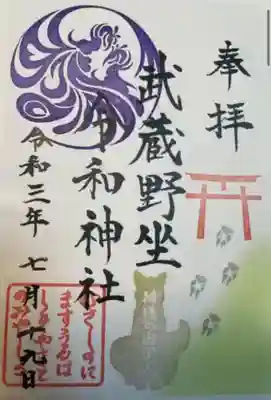 奉拝
武蔵野坐
令和神社
令和三年 七月十九日